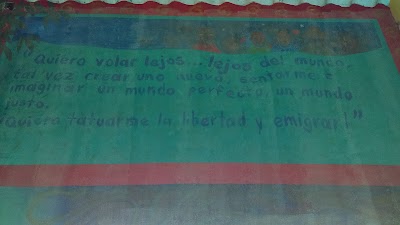 "Quiero volar lejos... lejos del mundo,
tal vez crear uno nuevo, sentarme e
imaginar un mundo perfecto, un mundo
justo.
Quiero tatuarme la libertad y emigrar!"